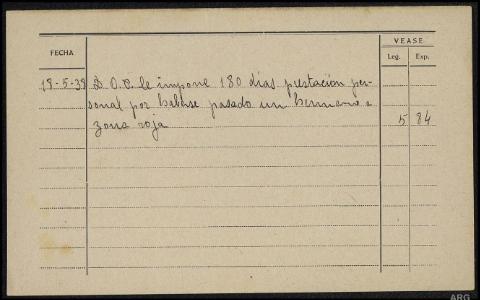 VEASE
FECHA
Leg. Exp.
18-5-38 D.O.P. le impone 180 dias prestación per-
sonal por haberse pasado un hermano a
zona roja
5 84
ARG